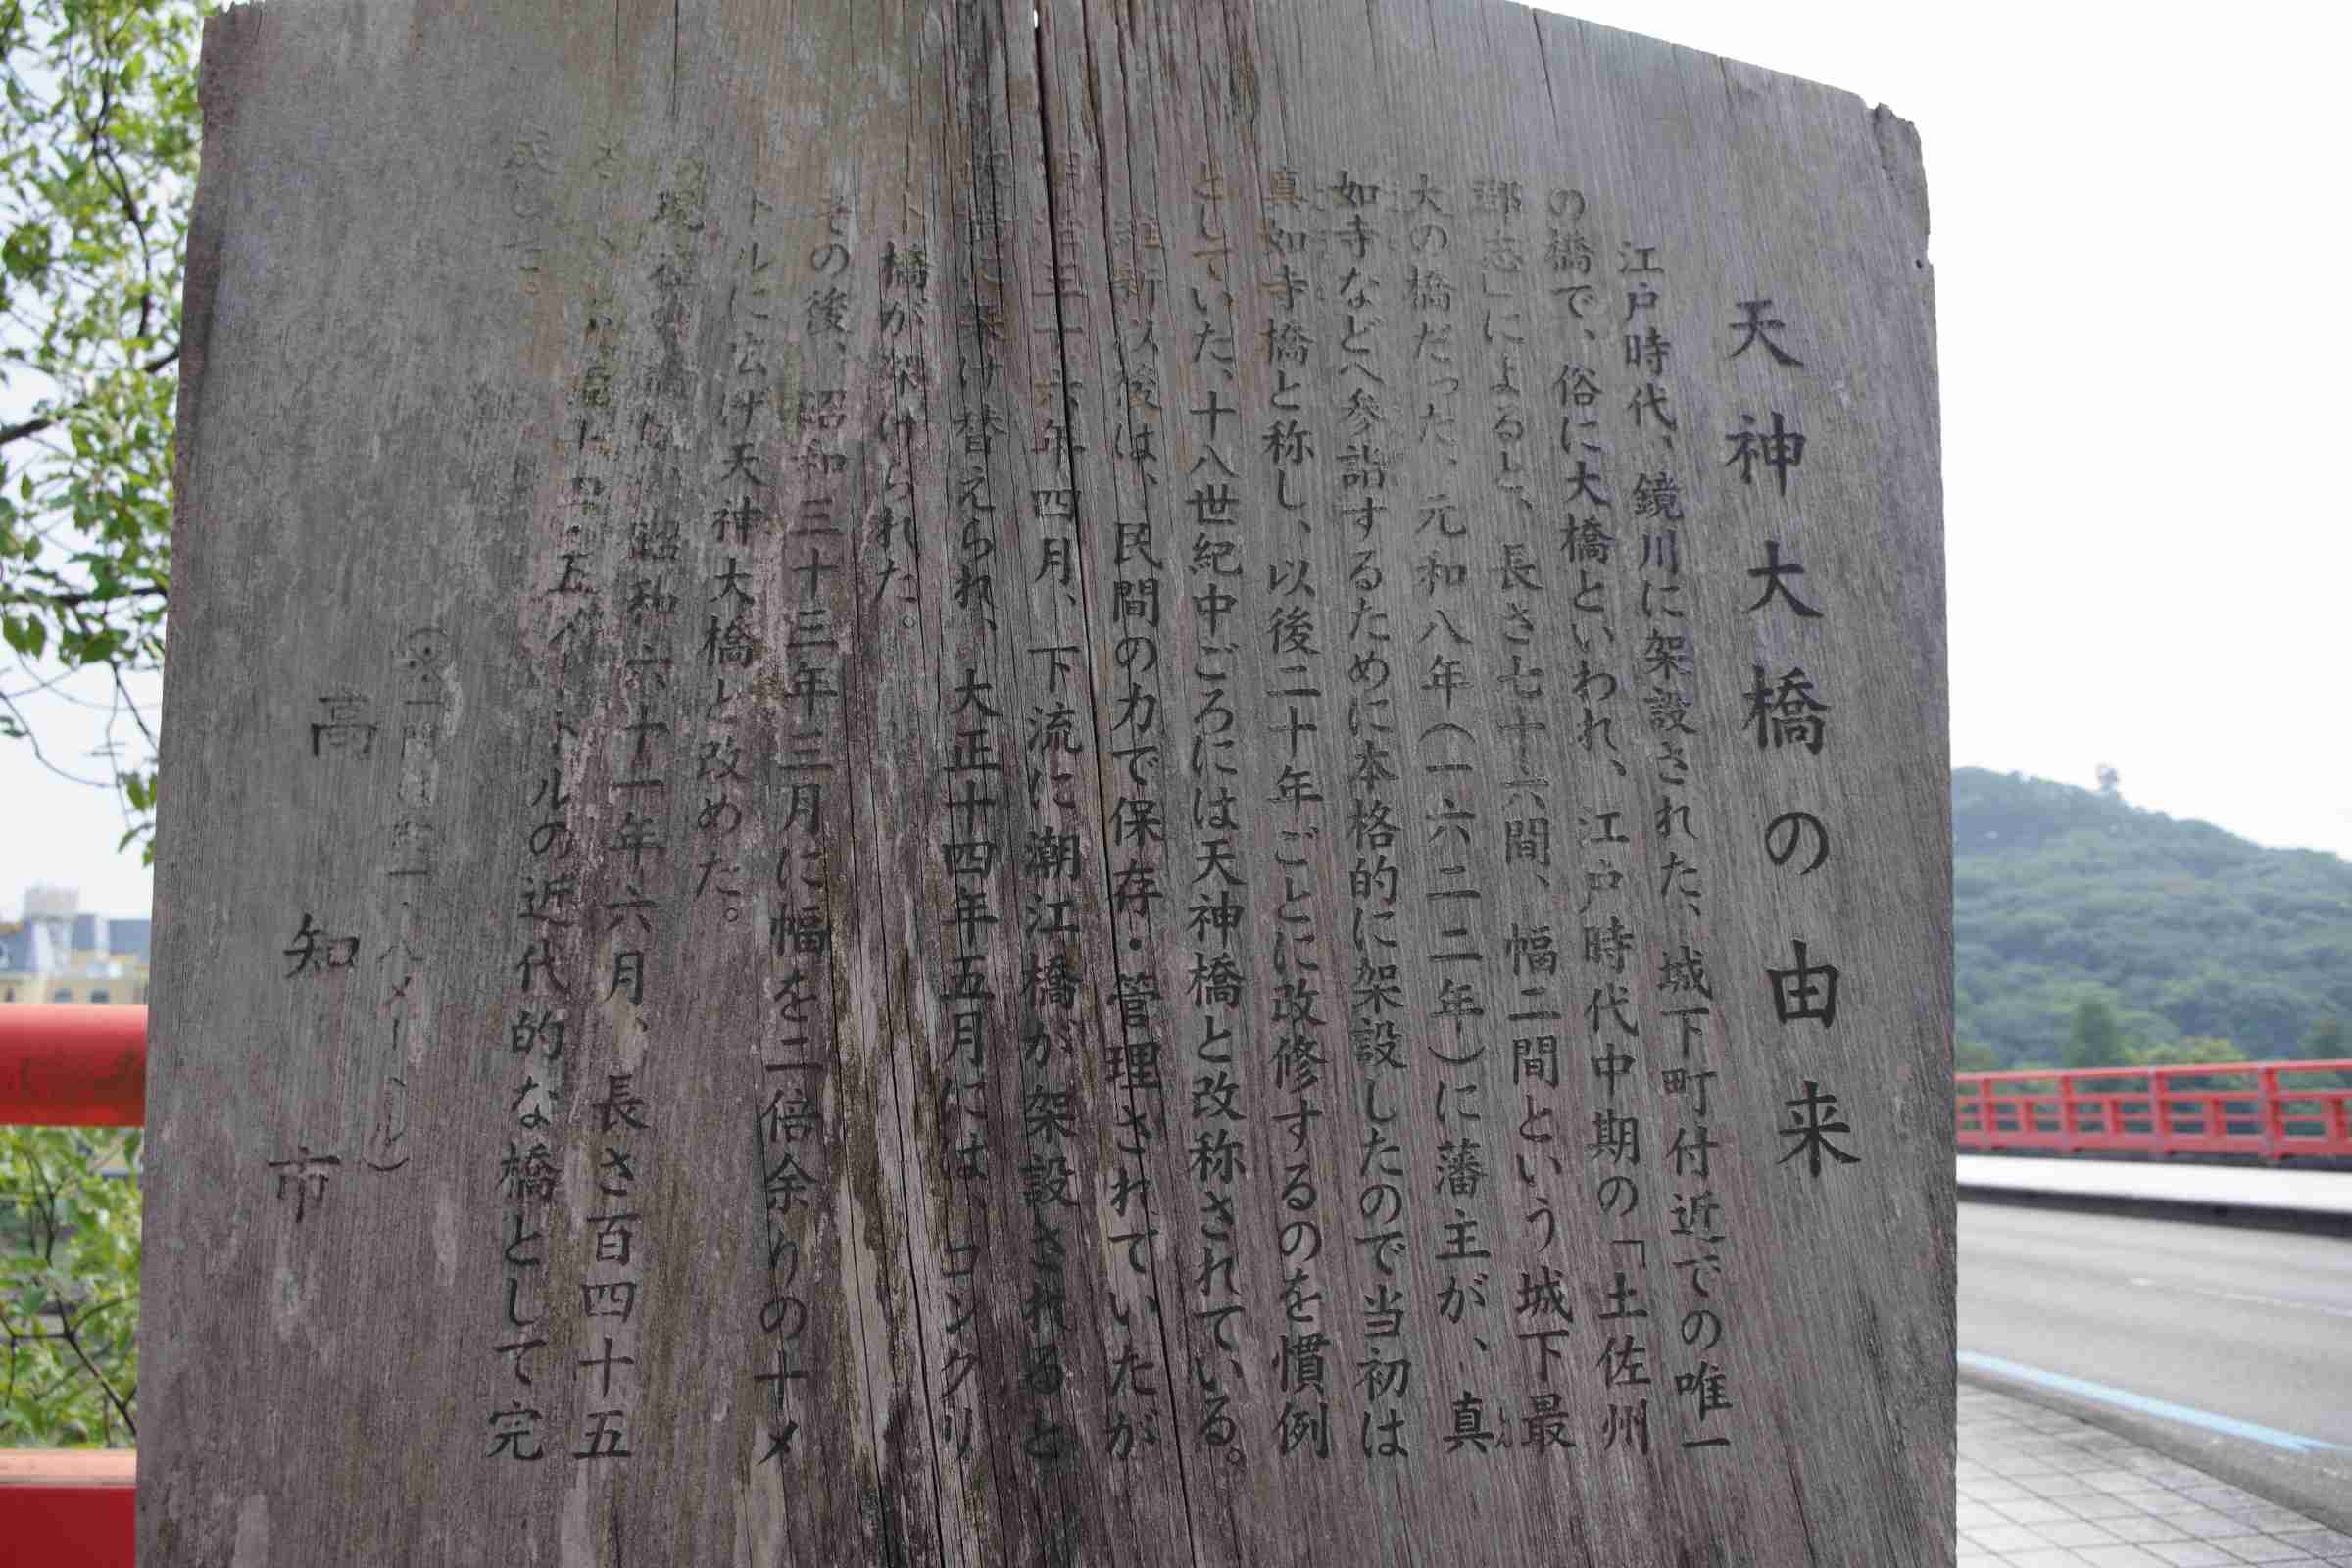 天神大橋の由来
江戸時代、鏡川に架設された、城下町付近での唯一
の橋で、俗に大橋といわれ、江戸時代中期の「土佐州
郡志」によると、長さ七十六間、幅二間という城下最
大の橋だった、元和八年(一六二二年)に藩主が、真
如寺などへ参詣するために本格的に架設したので当初は
真如寺橋と称し、以後二十年ごとに改修するのを慣例
としていた、十八世紀中ごろには天神橋と改称されている。
維新以後は、民間の力で保存・管理されていたが
明治三十六年四月、下流に潮江橋が架設されると
架け替えられ、大正十四年五月には、コンクリ
ート橋が架けられた。
その後、昭和三十三年三月に幅を二倍余りの十メ
ートルに広げ天神大橋と改めた。
現在の橋は、昭和六十一年六月、長さ百四十五
メートル、幅十四・五メートルの近代的な橋として完
成した。
(※一間は約一・八メートル)
高知市